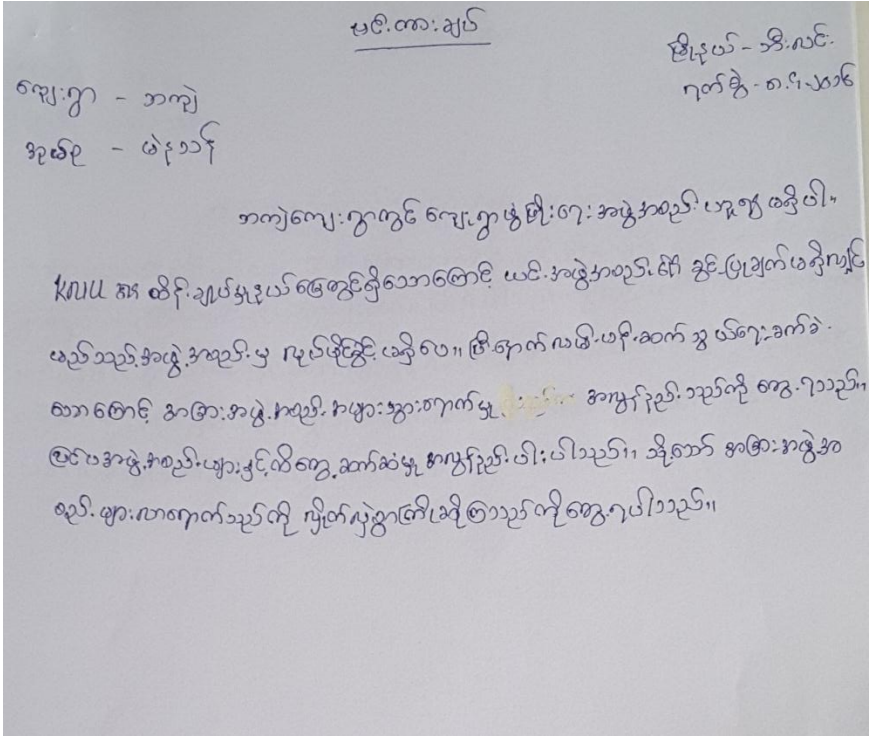 မင်းကားချပ်
မြို့နယ် - ဘီးလင်း
ကျေးရွာ - ဘကျဲ
ရက်စွဲ - ၈.၅.၂၀၁၆
အုပ်စု - မဲနသန်
ဘကျဲကျေးရွာတွင် ကျေးရွာဖွံ့ဖြိုးရေး အဖွဲ့အစည်း ဟူ၍ မရှိပါ။
KNU ထိန်းချုပ်မှုနယ်မြေတွင်ရှိသောကြောင့် ယင်းအဖွဲ့အစည်း၏ ခွင့်ပြုချက်မရှိလျှင်
မည်သည့်အဖွဲ့အစည်းမှ လုပ်ပိုင်ခွင့်မရှိပေ။ ပြီးနောက်လမ်းပန်းဆက်သွယ်ရေးခက်ခဲ
သောကြောင့် အခြားအဖွဲ့အစည်းအများသွားရောက်မှု အလွန်နည်းသည်ကို တွေ့ရသည်။
ပြင်ပအဖွဲ့အစည်းများနှင့်ထိတွေ့ဆက်ဆံမှု အလွန်နည်းပါးပါသည်။ သို့သော် အခြားအဖွဲ့အ
စည်းများလာရောက်သည်ကို လှိုက်လှဲစွာကြိုဆိုကြသည်ကိုတွေ့ရပါသည်။